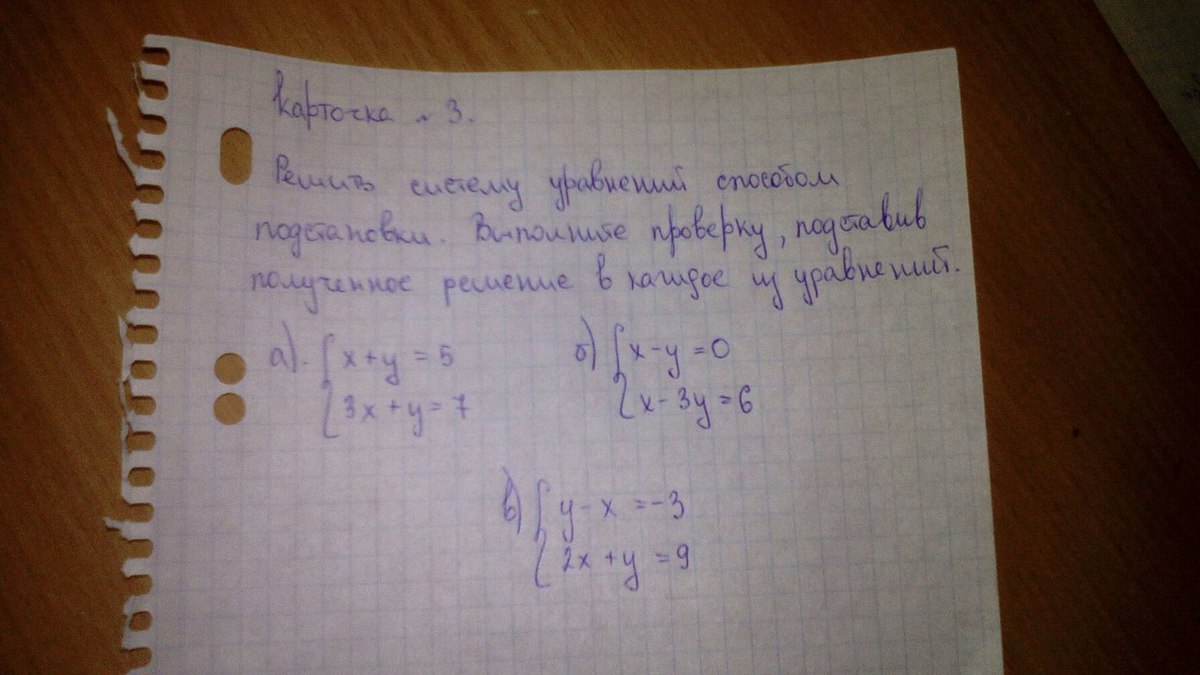 Карточка № 3.
Решить систему уравнений способом
подстановки. Выполните проверку, подставив
полученное решение в каждое из уравнений.
а). { x + y = 5 б) { x - y = 0
3x + y = 7 x - 3y = 6
в) { y - x = -3
2x + y = 9